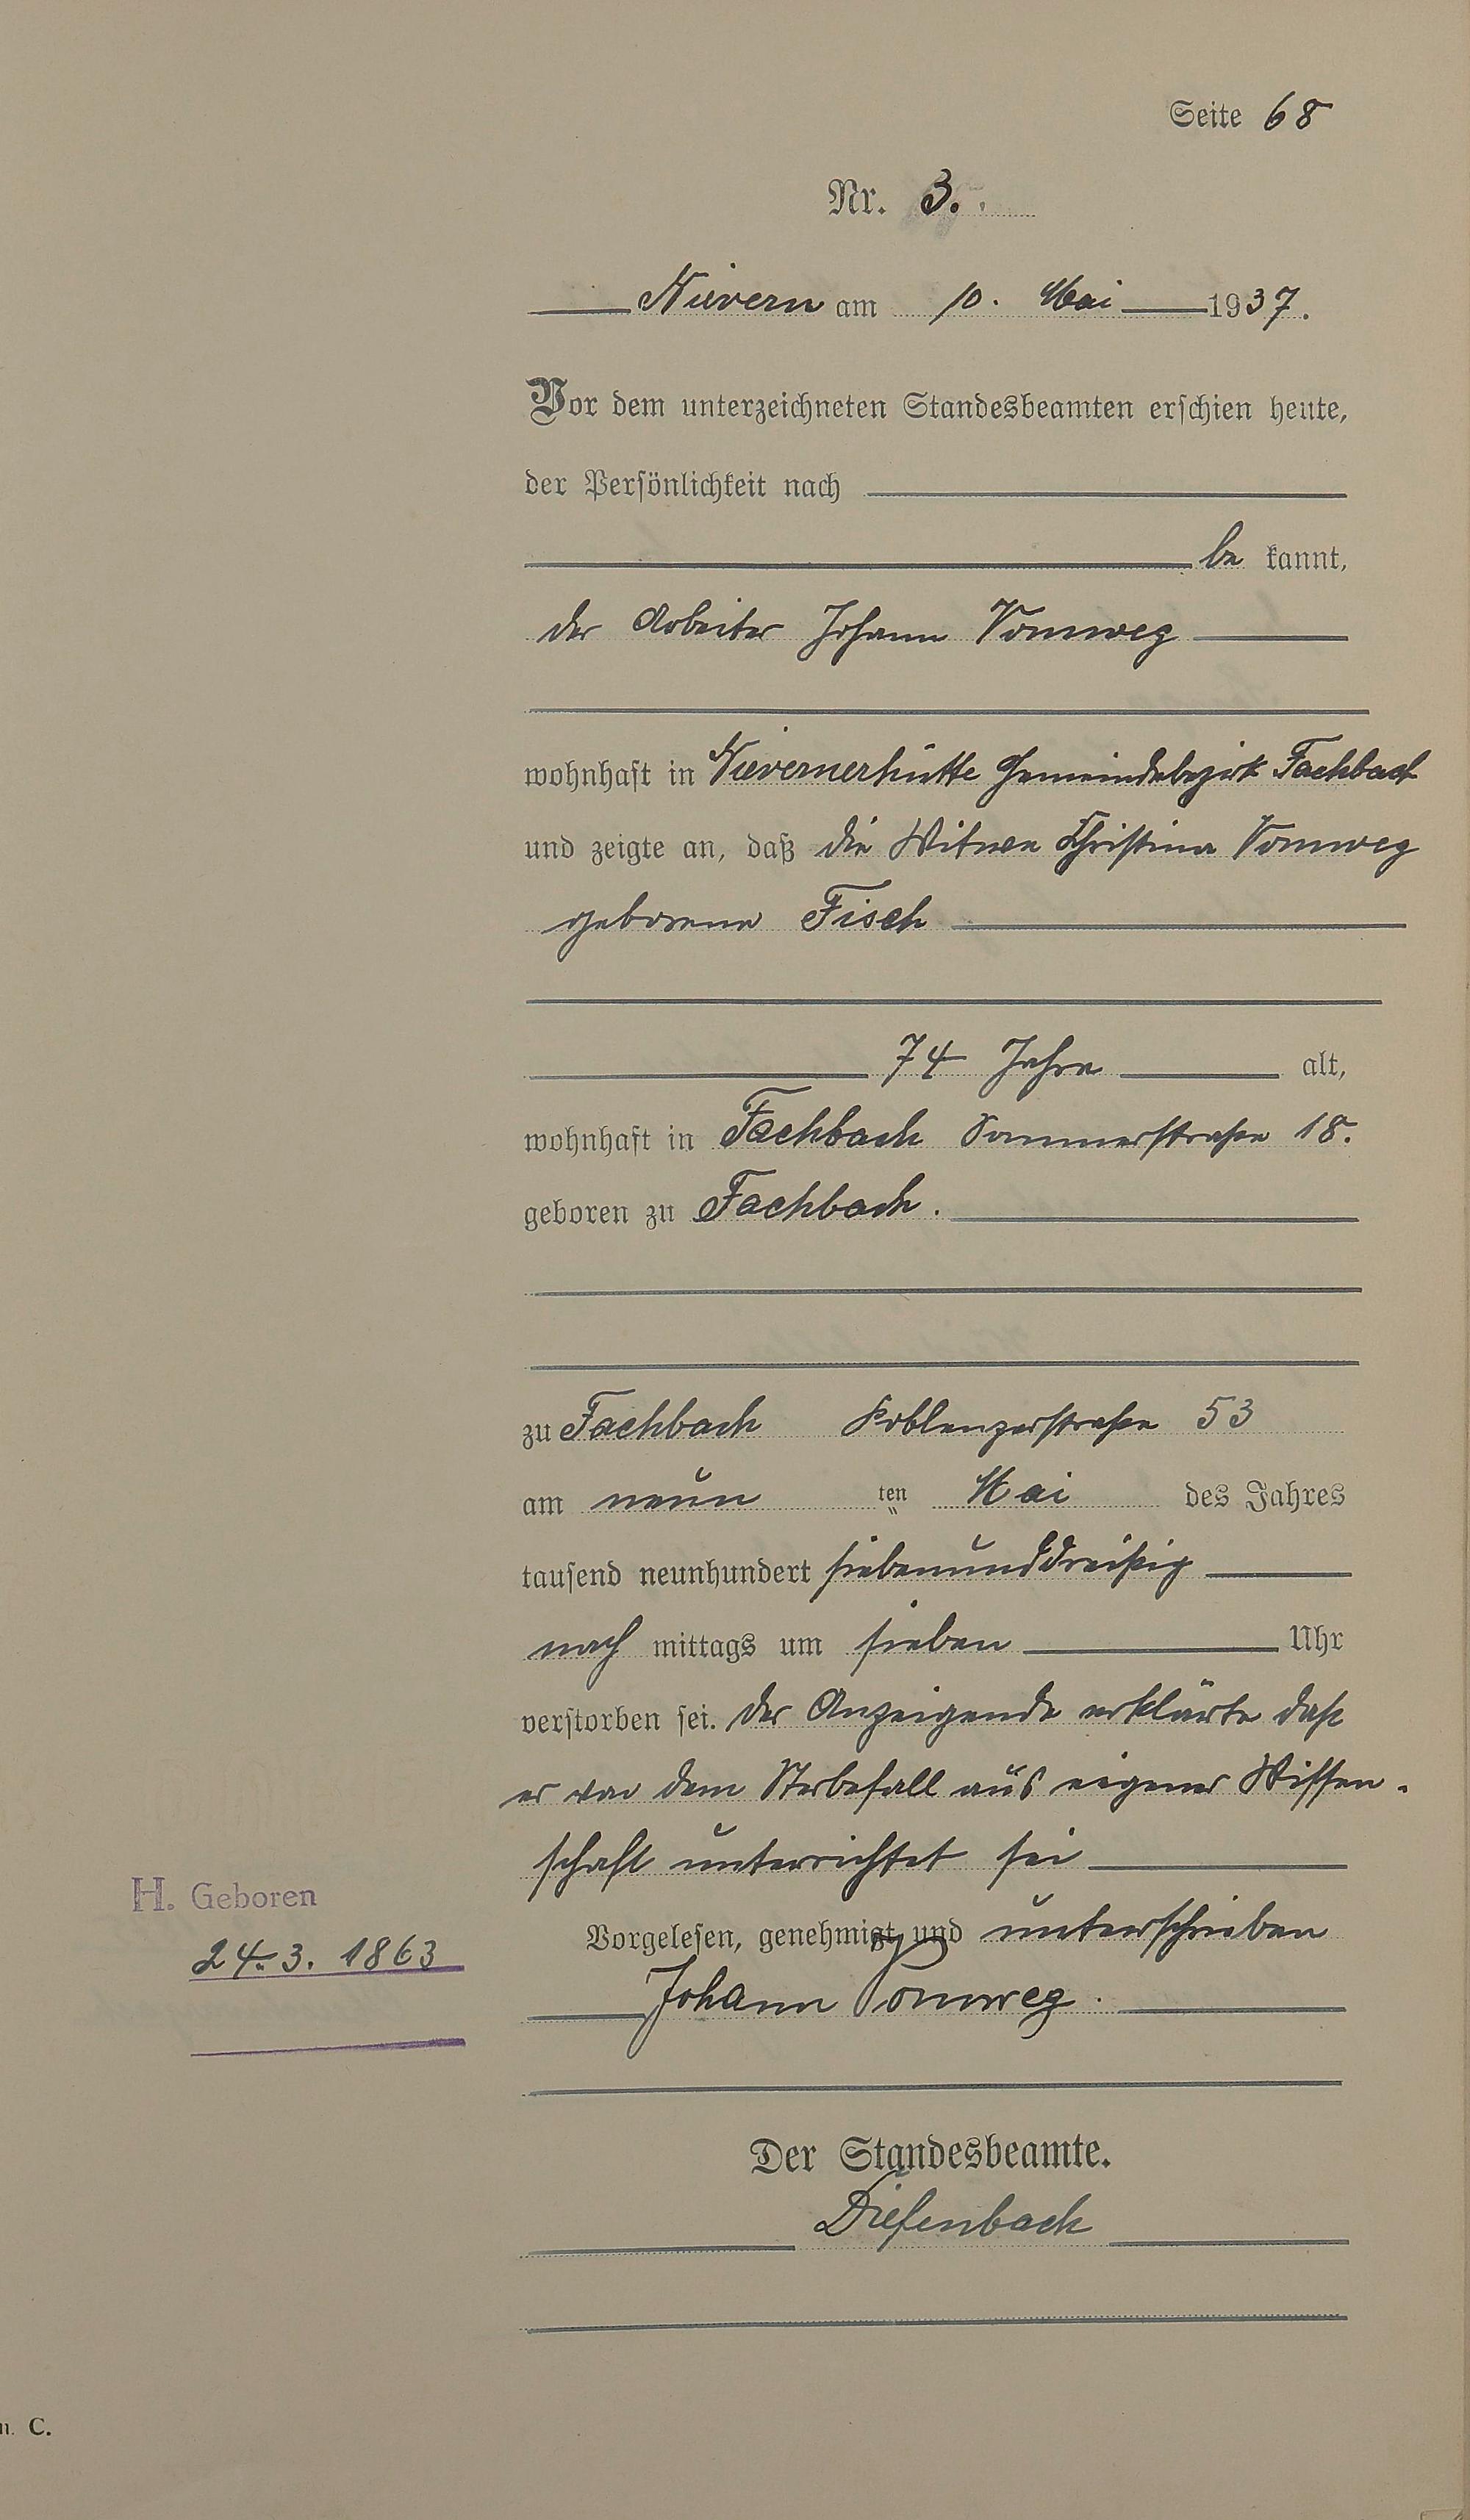 Seite 68
Nr. 3.
Nievern am 10. Mai 1937.
Vor dem unterzeichneten Standesbeamten erschien heute,
der Persönlichkeit nach
be kannt,
der Arbeiter Johann Vomweg
wohnhaft in Nievernerhütte Gemeindebezirk Fachbach
und zeigte an, daß die Witwe Christina Vomweg
geborene Fisch
74 Jahre alt,
wohnhaft in Fachbach Sommerstraße 18.
geboren zu Fachbach.
zu Fachbach Koblenzerstraße 53
am neun ten Mai des Jahres
tausend neunhundert siebenunddreißig
nach mittags um sieben Uhr
verstorben sei. Der Anzeigende erklärte daß
er von dem Sterbefall aus eigener Wissen-
schaft unterrichtet sei
H. Geboren
24. 3. 1863
Vorgelesen, genehmigt und unterschrieben
Johann Vomweg.
Der Standesbeamte.
Diefenbach
C.